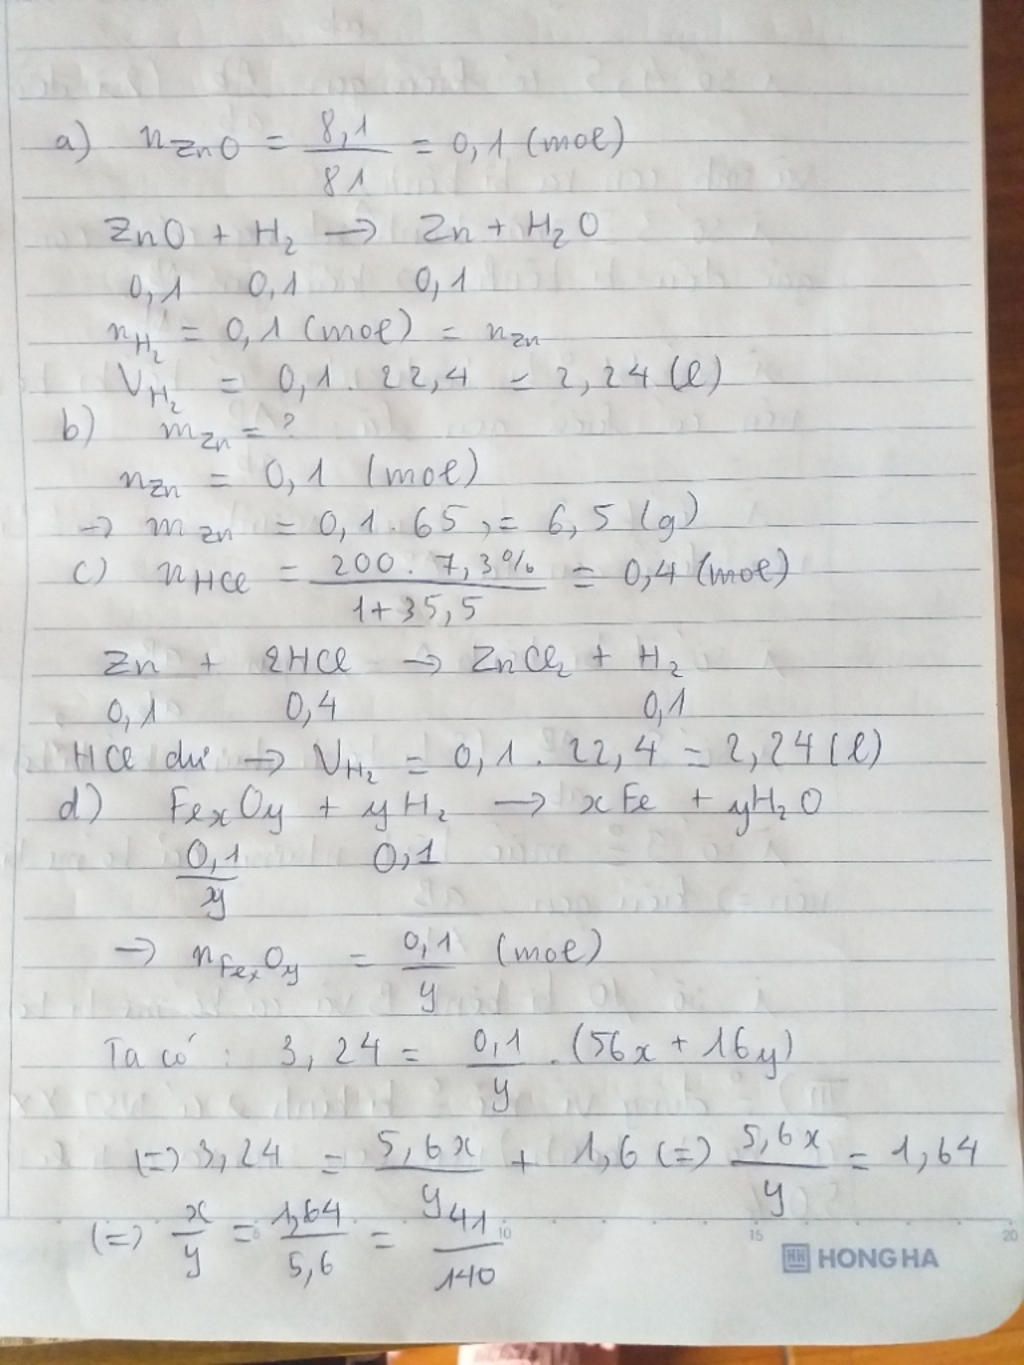 a) nZnO = 8,1/81 = 0,1 (mol)
ZnO + H₂ → Zn + H₂O
0,1 0,1 0,1
nH₂ = 0,1 (mol) = nZn
VH₂ = 0,1 . 22,4 = 2,24 (l)
b) mZn = ?
nZn = 0,1 (mol)
→ mZn = 0,1 . 65 = 6,5 (g)
c) nHCl = 200 . 7,3% / 1+35,5 = 0,4 (mol)
Zn + 2HCl → ZnCl₂ + H₂
0,1 0,4 0,1
HCl dư → VH₂ = 0,1 . 22,4 = 2,24 (l)
d) FexOy + yH₂ → xFe + yH₂O
0,1/y 0,1
→ nFexOy = 0,1/y (mol)
Ta có : 3,24 = 0,1/y . (56x + 16y)
(=) 3,24 = 5,6x/y + 1,6 (=) 5,6x/y = 1,64
(=) x/y = 1,64/5,6 = 41/140
5 10 15 20
HH HONG HA